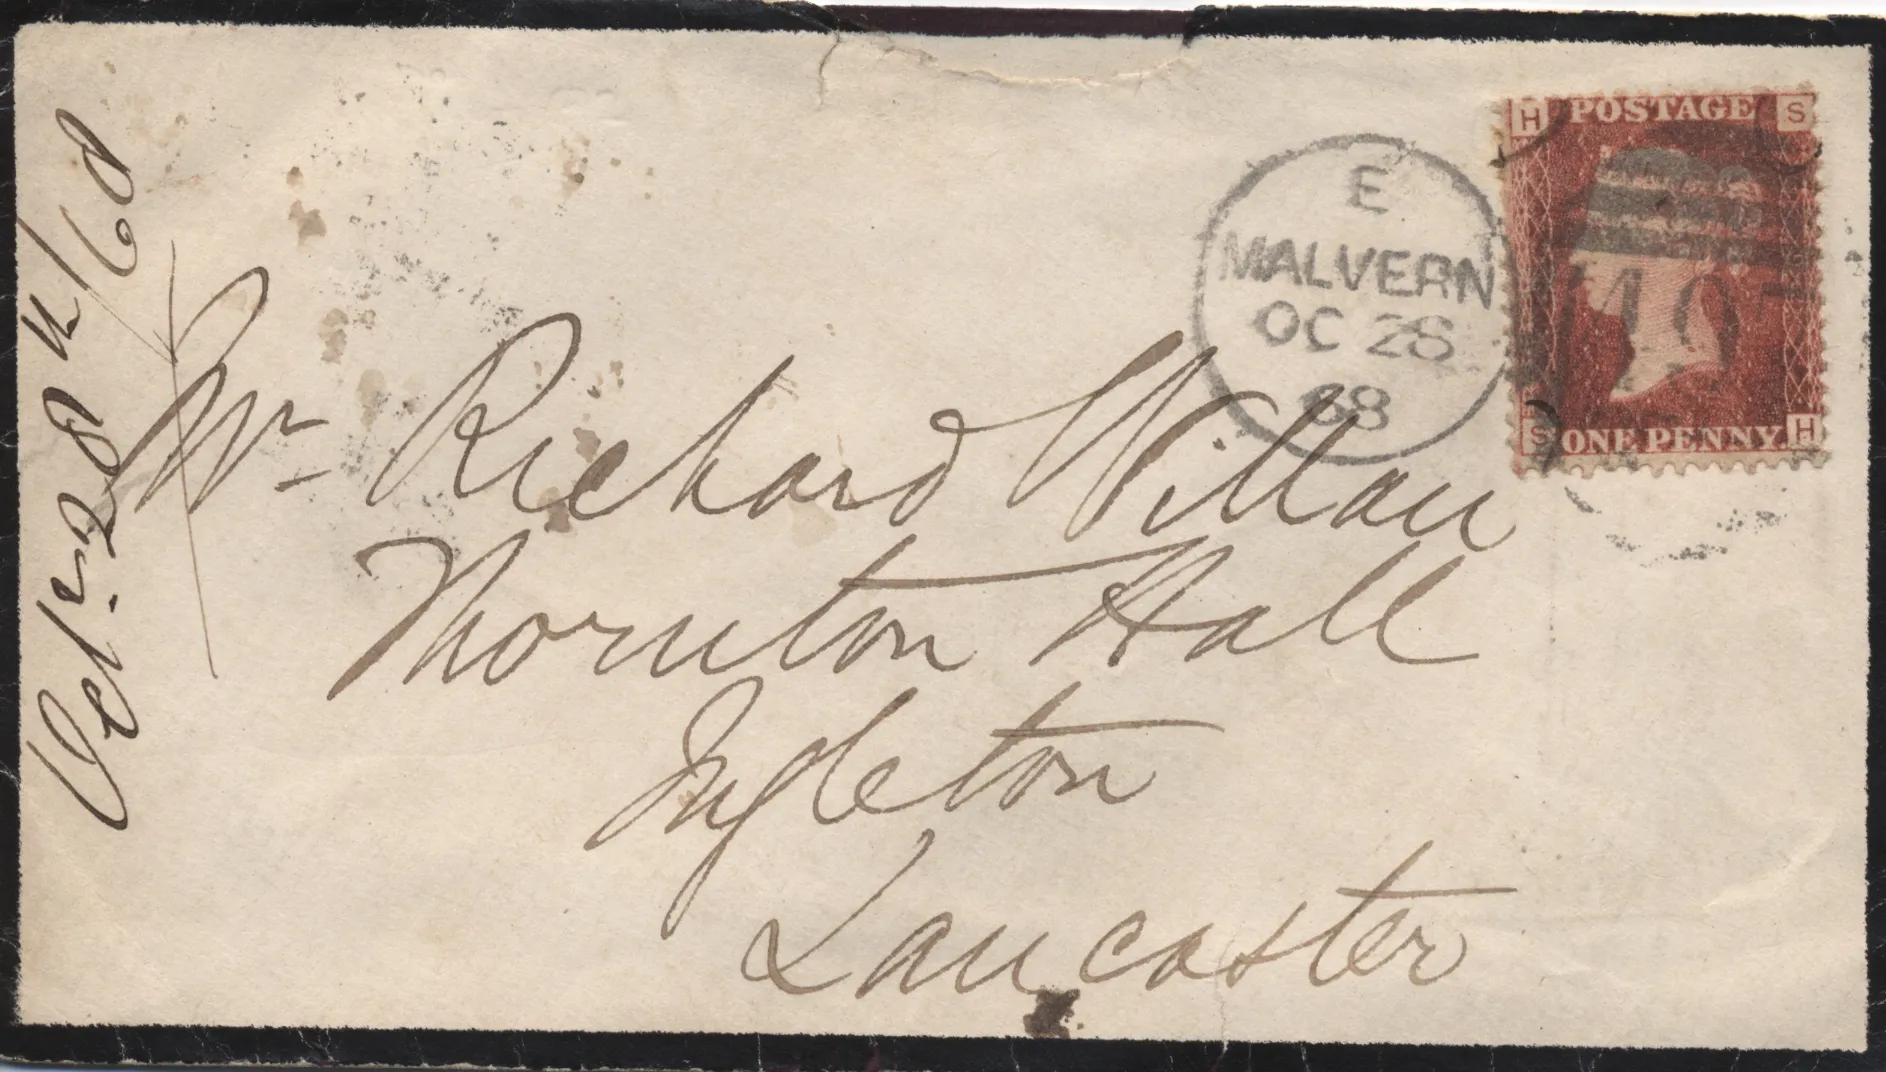 Oct 28th/68
E
MALVERN
OC 28
68
H POSTAGE S
S ONE PENNY H
Mr Richard Willan
Thornton Hall
Ingleton
Lancaster